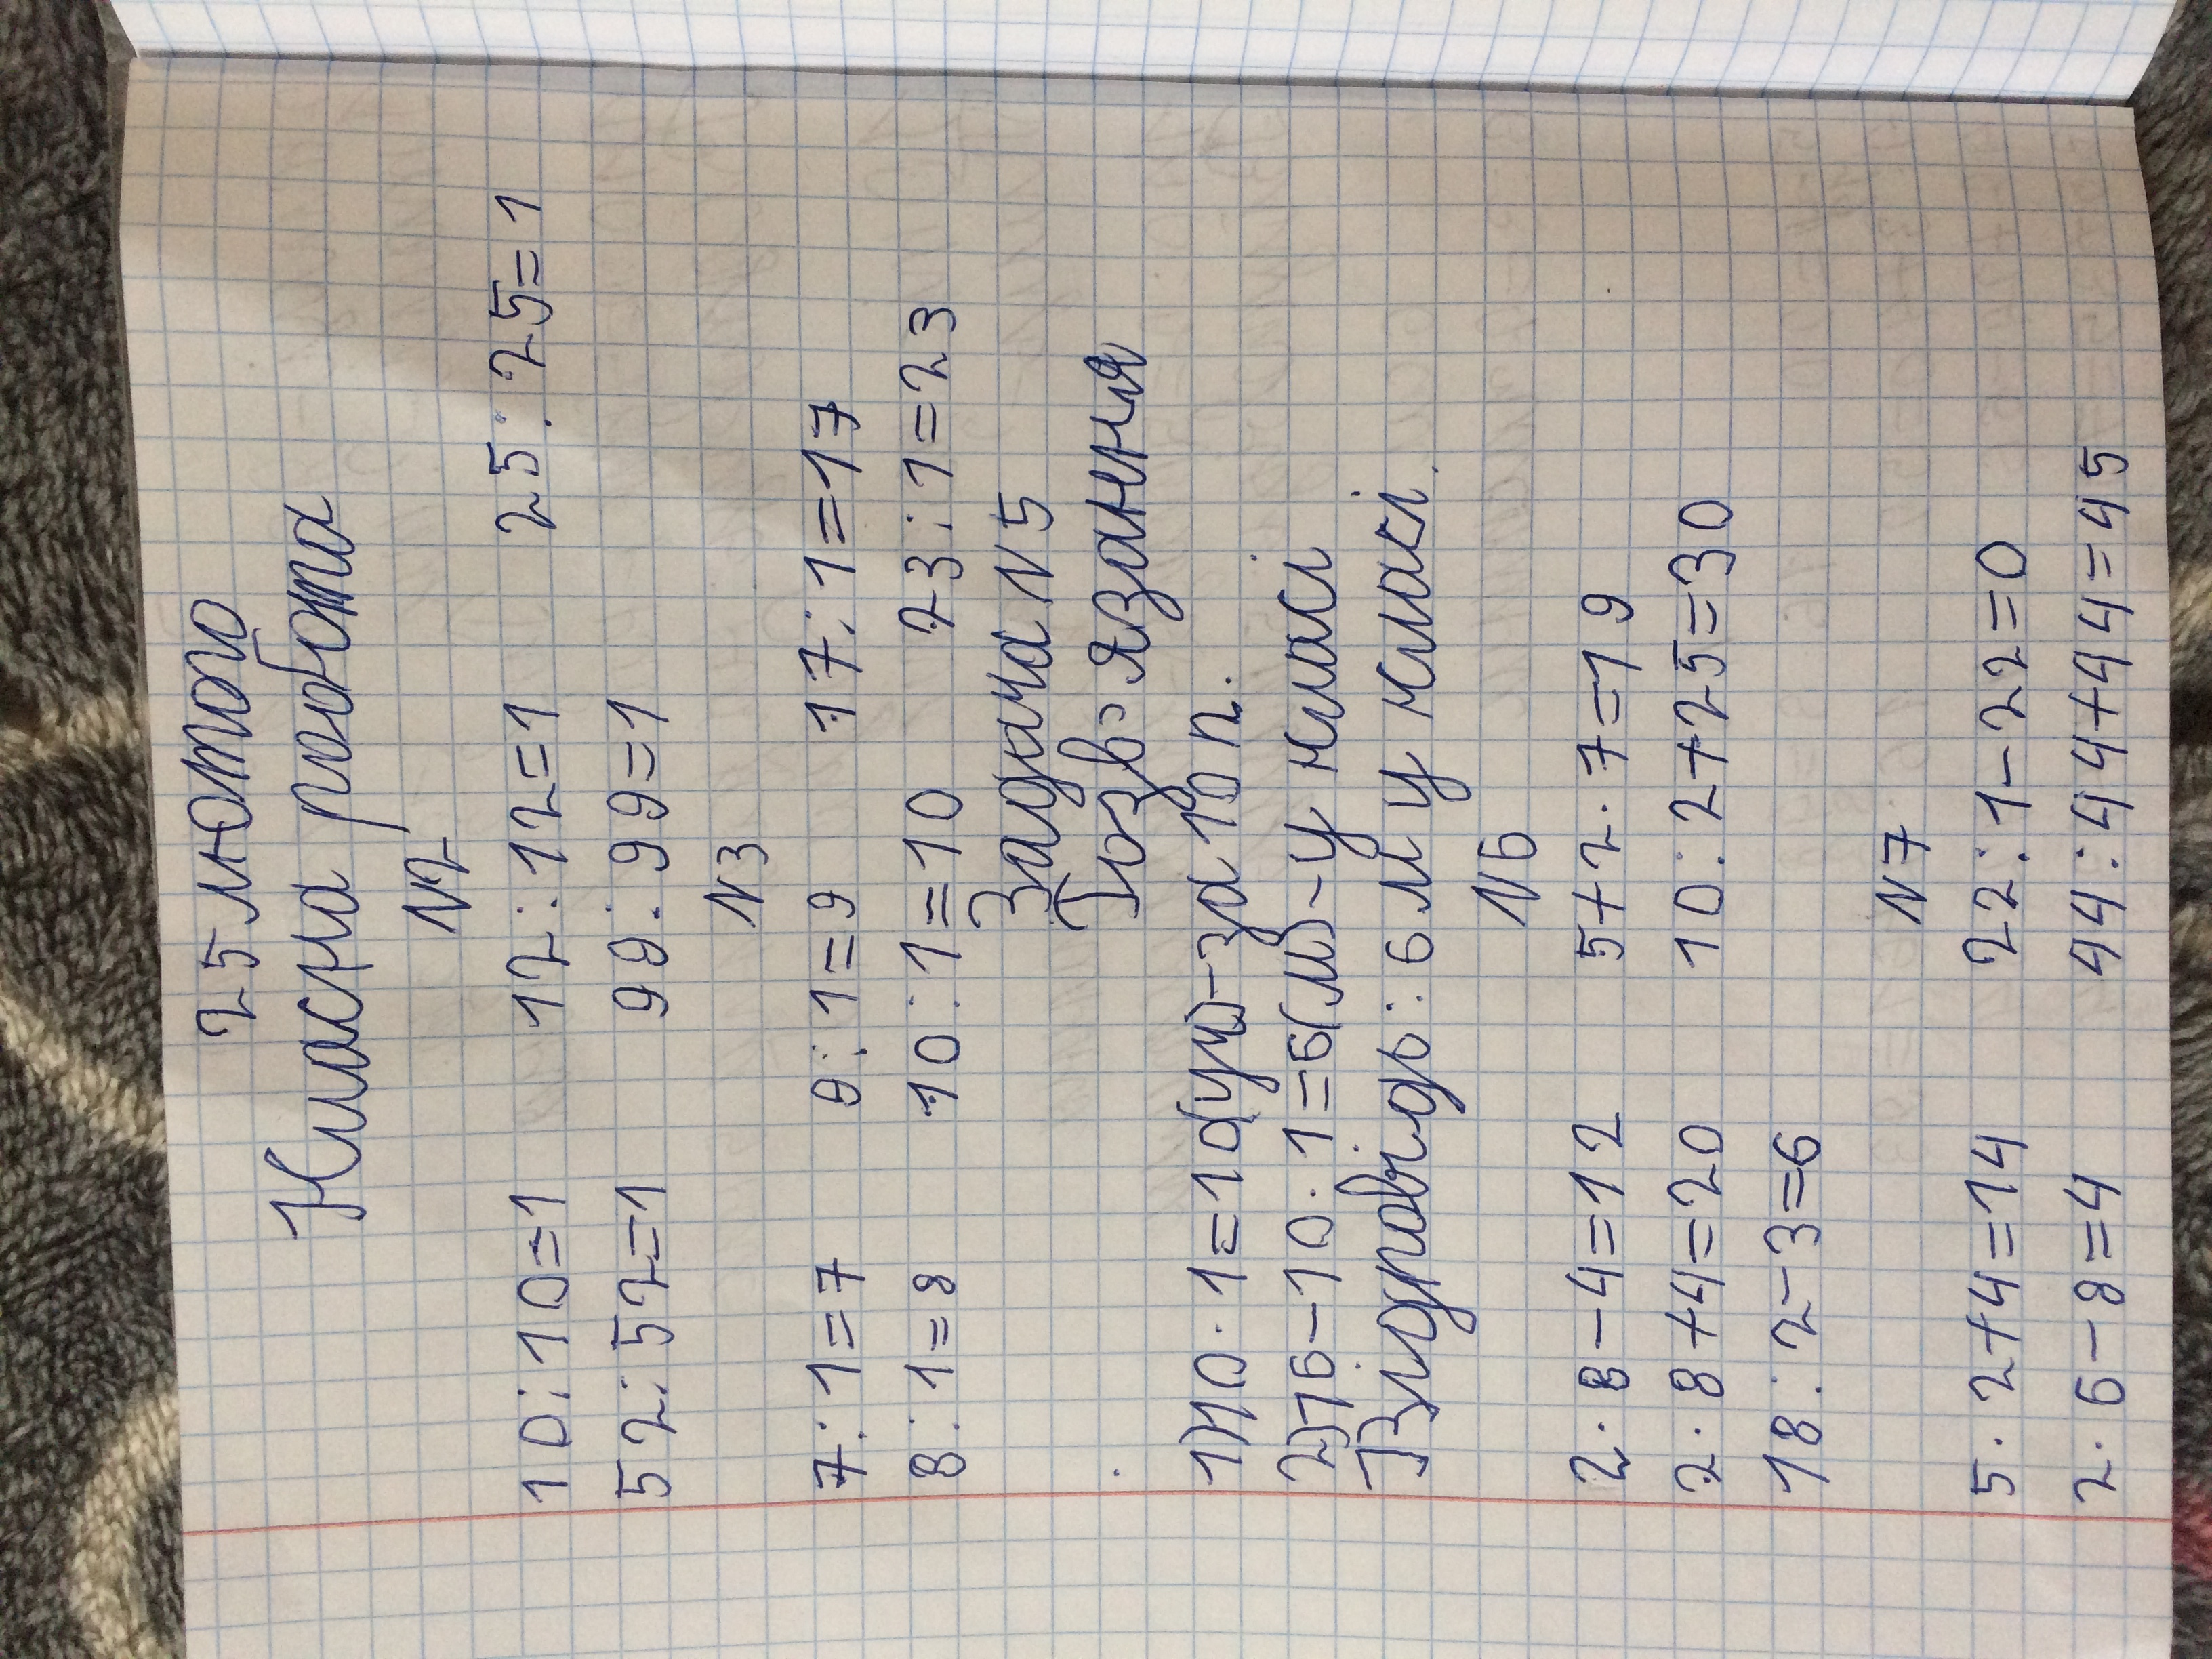 25 лютого
Класна робота
№2
10:10=1 12:12=1 25:25=1
52:52=1 99:99=1
№3
7:1=7 9:1=9 17:1=17
8:1=8 10:1=10 23:1=23
Задача №5
Розв'язання
1)10·1=10(уч)-за 10 п.
2)16-10·1=6(м)-у класі
Відповідь: 6 м у класі.
№6
2·8-4=12 5+2·7=19
2·8+4=20 10:2+25=30
18:2-3=6
№7
5·2+4=14 22:1-22=0
2·6-8=4 44:44+44=45